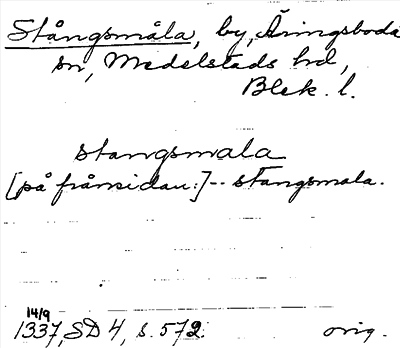 Stångsmåla, by, Åringsboda
sn, Medelstads hd,
Blek. l.
stangsmala
[på frånsidan:]-- stangsmala.
14/9
1337, SD 4, s. 572.
orig.